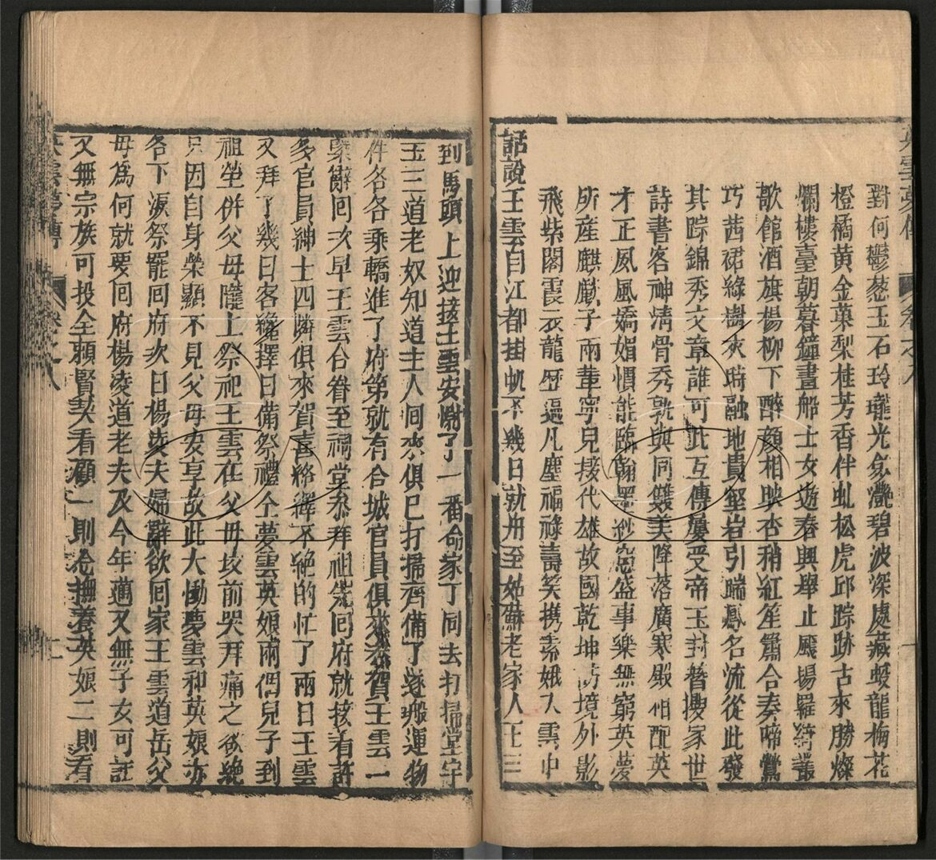 對何鬱蔥玉石玲瓏光瀲灩碧波深處藏蛟龍梅花
橙橘黃金菓梨桂芳香伴虬松虎邱踪跡古來勝燦
爛樓臺朝暮鐘畫船士女遊春興舉止飄揚羅綺叢
歌館酒旗楊柳下醉顏相映杏稍紅笙簫合奏啼鶯
巧茜裙綠樹夾時融地貴堅岩引瑞鳳名流從此發
其踪錦秀文章誰可比互傳屢受帝王封替摟家世
詩書客神清骨秀孰與同雙美降落廣寒殿相配英
才正風風嬌媚慣能臨翰墨紗窓盛事樂無窮英夢
所產麒麟子兩輩寧兒接代雄故國乾坤訪境外影
飛柴閣霞衣龍歷遍凡塵福祿壽笑携素娥入雲中
話說王雲自江都掛帆不幾日就舟至姑蘇老家人王三
到馬頭上迎接王雲安慰了一番命家丁同去打掃堂宇
王三道老奴知道主人回來俱已打掃齊備了遂搬運物
件各各乘轎進了府第就有合城官員俱來恭賀王雲一
槩辭回次早王雲合眷至祠堂恭拜祖先回府就接着許
多官員紳士四隣俱來賀喜絡繹不絕的忙了兩日王雲
又拜了幾日客纔擇日備祭禮仝夢雲英娘兩個兒子到
祖塋併父母隴上祭祀王雲在父母坟前哭拜痛之欲絕
只因自身榮顯不見父母安享故此大慟夢雲和英娘亦
各下淚祭罷回府次日楊凌夫婦辭欲回家王雲道岳父
母為何就要回府楊凌道老夫及今年邁又無子女可託
又無宗族可投全賴賢契看顧一則念撫養英娘二則看
英雲夢傳
卷之八
十一